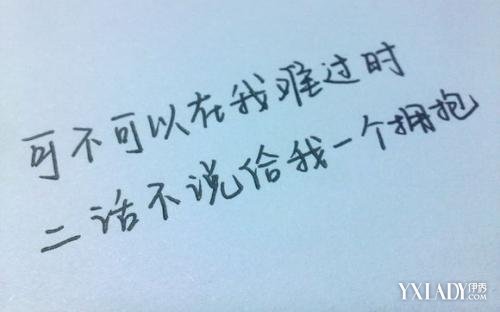 可不可以在我难过时
二话不说给我一个拥抱
YXLADY伊秀
.COM